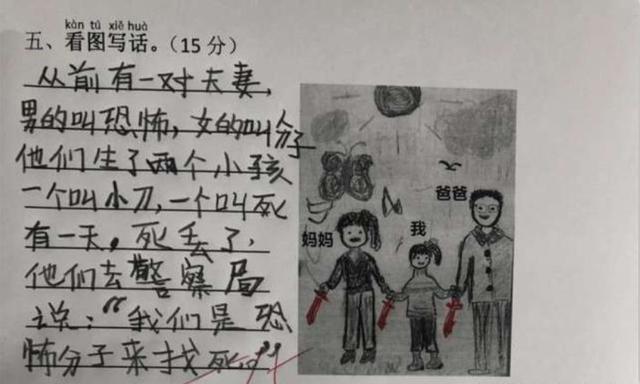 kàn tú xiě huà
五、看图写话。（15 分）
从前有一对夫妻，
男的叫恐怖，女的叫分子
他们生了两个小孩
一个叫小刀，一个叫死
有一天，死丢了，
他们去警察局
说：“我们是恐
怖分子来找死。”
妈妈
我
爸爸